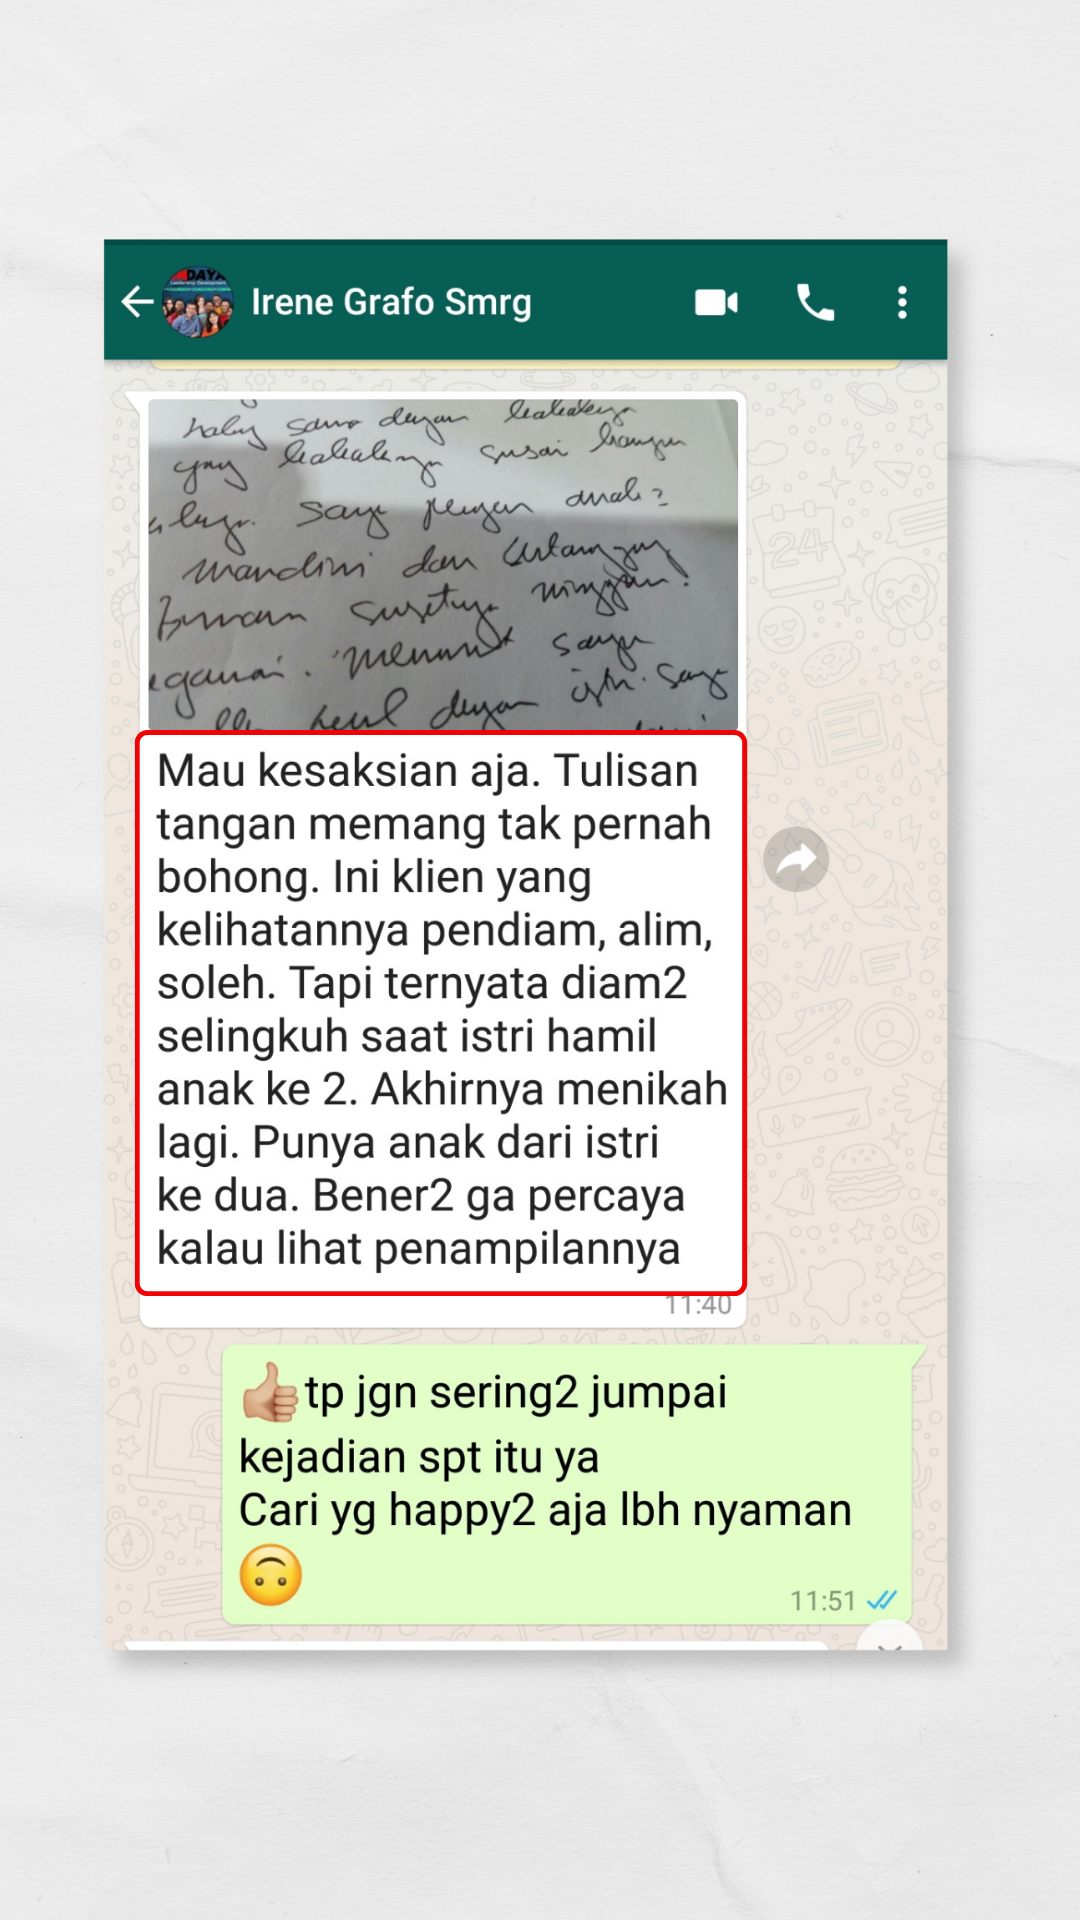 DAYA
Leadership Development
Irene Grafo Smrg
sama dengan kakaknya
yang kakaknya susai bangun
Saya pengen anak2
mandiri dan
minggu
menurut saya
dengan istri. Saya
24
Mau kesaksian aja. Tulisan
tangan memang tak pernah
bohong. Ini klien yang
kelihatannya pendiam, alim,
soleh. Tapi ternyata diam2
selingkuh saat istri hamil
anak ke 2. Akhirnya menikah
lagi. Punya anak dari istri
ke dua. Bener2 ga percaya
kalau lihat penampilannya
11:40
👍tp jgn sering2 jumpai
kejadian spt itu ya
Cari yg happy2 aja lbh nyaman
🙃
11:51